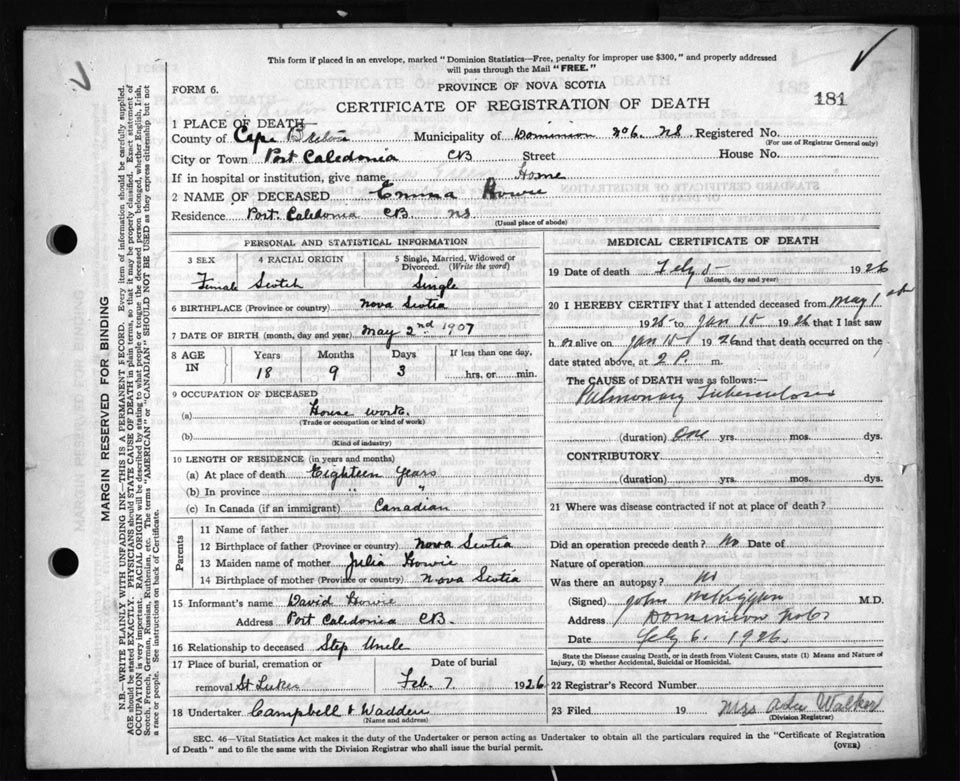 This form if placed in an envelope, marked "Dominion Statistics—Free, penalty for improper use $300," and properly addressed
will pass through the Mail "FREE."
FORM 6.
PROVINCE OF NOVA SCOTIA
CERTIFICATE OF REGISTRATION OF DEATH
181
1 PLACE OF DEATH—
County of Cape Breton Municipality of Dominion No 6. NS Registered No.
(For use of Registrar General only)
City or Town Port Caledonia CB Street House No.
If in hospital or institution, give name Home
2 NAME OF DECEASED Emma Howie
Residence Port Caledonia CB. NS
(Usual place of abode)
PERSONAL AND STATISTICAL INFORMATION
3 SEX 4 RACIAL ORIGIN 5 Single, Married, Widowed or
Divorced. (Write the word)
Female Scotch Single
6 BIRTHPLACE (Province or country) Nova Scotia
7 DATE OF BIRTH (month, day and year) May 2nd 1907
8 AGE IN Years Months Days If less than one day,
18 9 3 hrs. or min.
9 OCCUPATION OF DECEASED
(a) House work.
(Trade or occupation or kind of work)
(b)
(Kind of industry)
10 LENGTH OF RESIDENCE (in years and months)
(a) At place of death Eighteen years
(b) In province " "
(c) In Canada (if an immigrant) Canadian
Parents
11 Name of father
12 Birthplace of father (Province or country) Nova Scotia
13 Maiden name of mother Julia Howie
14 Birthplace of mother (Province or country) Nova Scotia
15 Informant's name David Howie
Address Port Caledonia CB.
16 Relationship to deceased Step Uncle
17 Place of burial, cremation or Date of burial
removal St Lukes Feb. 7 1926
18 Undertaker Campbell & Wadden
(Name and address)
MEDICAL CERTIFICATE OF DEATH
19 Date of death Feby 5 1926
(Month, day and year)
20 I HEREBY CERTIFY that I attended deceased from May 1st
1925 to Jan 15 1926 that I last saw
h er alive on Jan 15 1926 and that death occurred on the
date stated above, at 2 P. m.
The CAUSE of DEATH was as follows:—
Pulmonary Tuberculosis
(duration) One yrs. mos. dys.
CONTRIBUTORY
(duration) yrs. mos. dys.
21 Where was disease contracted if not at place of death?
Did an operation precede death? No Date of
Nature of operation
Was there an autopsy? No
(Signed) John M.D.
Address Dominion No 6
Date Feby 6. 1926.
State the Disease causing Death, or in death from Violent Causes, state (1) Means and Nature of
Injury, (2) whether Accidental, Suicidal or Homicidal.
22 Registrar's Record Number
23 Filed 19 Mrs Walker
(Division Registrar)
SEC. 46—Vital Statistics Act makes it the duty of the Undertaker or person acting as Undertaker to obtain all the particulars required in the "Certificate of Registration
of Death" and to file the same with the Division Registrar who shall issue the burial permit.
(OVER)
MARGIN RESERVED FOR BINDING
N.B.—WRITE PLAINLY WITH UNFADING INK—THIS IS A PERMANENT RECORD. Every item of information should be carefully supplied.
AGE should be stated EXACTLY. PHYSICIANS should STATE CAUSE OF DEATH in plain terms, so that it may be properly classified. Exact statement of
OCCUPATION is very important. RACIAL ORIGIN will be described by stating to what people or tongue the deceased person belonged, whether English, Irish,
Scotch, French, German, Russian, Ruthenian, etc. The terms "AMERICAN" or "CANADIAN" SHOULD NOT BE USED as they express citizenship but not
a race or people. See instructions on back of Certificate.